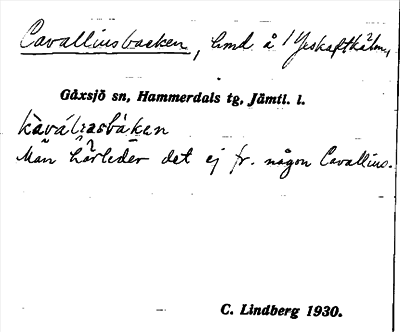 Cavalliusbacken, hmd å
Gåxsjö sn, Hammerdals tg, Jämtl. l.
kàválɩasbákan
Man härleder det ej fr. någon Cavallius.
C. Lindberg 1930.